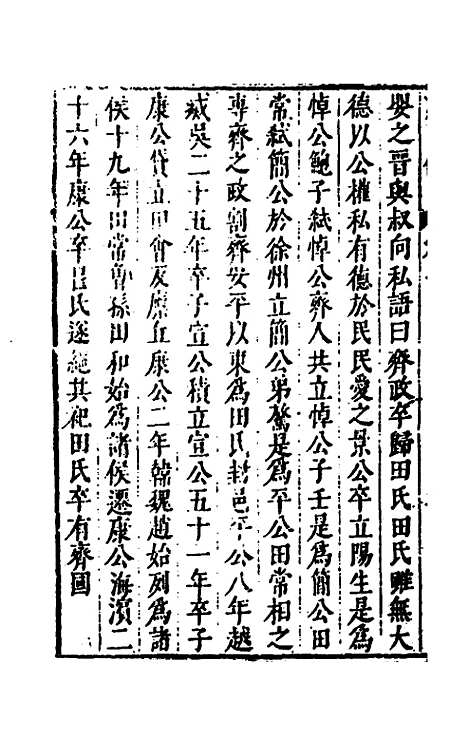 嬰之晉與叔向私語曰齊政卒歸田氏田氏雖無大
德以公權私有德於民民愛之景公卒立陽生是爲
悼公鮑子弒悼公齊人共立悼公子壬是爲簡公田
常弒簡公於徐州立簡公弟驁是爲平公田常相之
專齊之政割齊安平以東爲田氏封邑平公八年越
滅吳二十五年卒子宣公積立宣公五十一年卒子
康公貸立田會反廩丘康公二年韓魏趙始列爲諸
侯十九年田常曾孫田和始爲諸侯遷康公海濱二
十六年康公卒呂氏遂絕其祀田氏卒有齊國